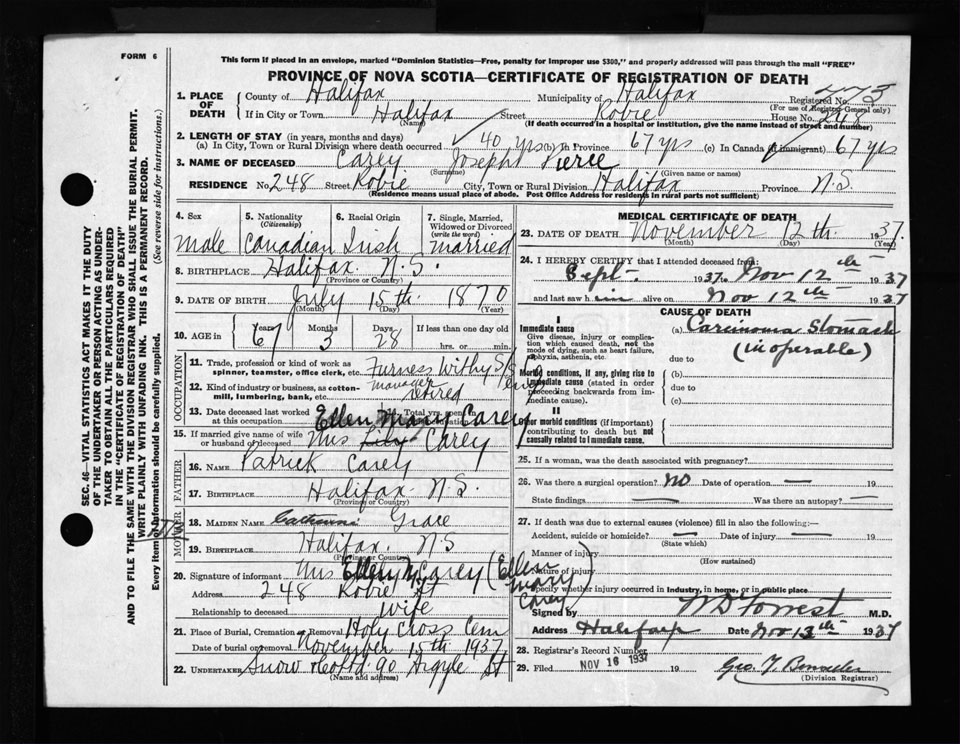 FORM 6
This form if placed in an envelope, marked "Dominion Statistics—Free, penalty for improper use $300," and properly addressed will pass through the mail "FREE"
PROVINCE OF NOVA SCOTIA—CERTIFICATE OF REGISTRATION OF DEATH
SEC. 46—VITAL STATISTICS ACT MAKES IT THE DUTY
OF THE UNDERTAKER OR PERSON ACTING AS UNDER-
TAKER TO OBTAIN ALL THE PARTICULARS REQUIRED
IN THE "CERTIFICATE OF REGISTRATION OF DEATH"
AND TO FILE THE SAME WITH THE DIVISION REGISTRAR WHO SHALL ISSUE THE BURIAL PERMIT.
WRITE PLAINLY WITH UNFADING INK. THIS IS A PERMANENT RECORD.
Every item of information should be carefully supplied. (See reverse side for instructions.)
1. PLACE OF DEATH County of Halifax Municipality of Halifax Registered No. 473
(For use of Registrar General only)
If in City or Town Halifax Street Robie House No. 248
(Name) (If death occurred in a hospital or institution, give the name instead of street and number)
2. LENGTH OF STAY (in years, months and days)
(a) In City, Town or Rural Division where death occurred 40 yrs (b) In Province 67 yrs (c) In Canada (if immigrant) 67 yrs
3. NAME OF DECEASED Carey Joseph Pierce
(Surname) (Given name or names)
RESIDENCE No. 248 Street Robie City, Town or Rural Division Halifax Province N.S.
(Residence means usual place of abode. Post Office Address for residents in rural parts not sufficient)
4. Sex 5. Nationality (Citizenship) 6. Racial Origin 7. Single, Married, Widowed or Divorced (write the word)
male Canadian Irish married
8. BIRTHPLACE Halifax N.S.
(Province or Country)
9. DATE OF BIRTH July 15th 1870
(Month) (Day) (Year)
10. AGE in Years Months Days If less than one day old
67 3 28 hrs. or min.
OCCUPATION
11. Trade, profession or kind of work as spinner, teamster, office clerk, etc. Furness Withy S/S
12. Kind of industry or business, as cotton-mill, lumbering, bank, etc. manager retired
13. Date deceased last worked at this occupation Total yrs. spent in
Ellen Mary Carey
15. If married give name of wife or husband of deceased Mrs Carey
FATHER
16. NAME Patrick Carey
17. BIRTHPLACE Halifax N.S.
(Province or Country)
MOTHER
18. MAIDEN NAME Catherine Grace
19. BIRTHPLACE Halifax N.S
(Province or Country)
20. Signature of informant Mrs Ellen M Carey (Ellen Mary Carey)
Address 248 Robie St
Relationship to deceased wife
21. Place of Burial, Cremation or Removal Holy Cross Cem
Date of burial or removal November 15th 1937
22. UNDERTAKER Snow & Co Ltd. 90 Argyle St
(Name and address)
MEDICAL CERTIFICATE OF DEATH
23. DATE OF DEATH November 12th. 1937.
(Month) (Day) (Year)
24. I HEREBY CERTIFY that I attended deceased from:
Sept. 1937 Nov 12th 1937
and last saw him alive on Nov 12th 1937
CAUSE OF DEATH
I
Immediate cause (a) Carcinoma Stomach
Give disease, injury or complication which caused death, not the mode of dying, such as heart failure, asphyxia, asthenia, etc. (inoperable)
due to
Morbid conditions, if any, giving rise to immediate cause (stated in order proceeding backwards from immediate cause). (b)
due to
(c)
II
Other morbid conditions (if important) contributing to death but not causally related to immediate cause.
25. If a woman, was the death associated with pregnancy?
26. Was there a surgical operation? No Date of operation — 19
State findings — Was there an autopsy? —
27. If death was due to external causes (violence) fill in also the following:—
Accident, suicide or homicide? — Date of injury — 19
(State which)
Manner of injury
(How sustained)
Nature of injury
Specify whether injury occurred in Industry, in home, or in public place
Signed by W D Forrest M.D.
Address Halifax Date Nov 13th 1937
28. Registrar's Record Number
29. Filed NOV 16 1937 19
(Division Registrar)